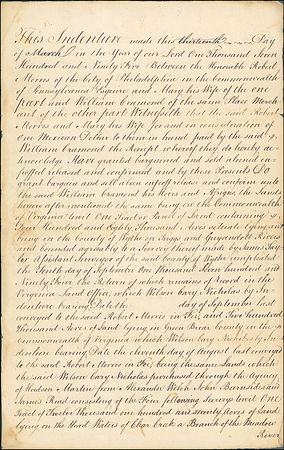 This Indenture made this thirteenth Day
of March in the Year of our Lord One Thousand Seven
Hundred and Ninety Five Between the Honorable Robert
Morris of the City of Philadelphia in the Commonwealth
of Pennsylvania Esquire and Mary his Wife of the one
part and William Cramond of the same Place Merch
ant of the other part Witnesseth that the said Robert
Morris and Mary his Wife for and in consideration of
One Mexican Dollar to them in hand paid by the said
William Cramond the Receipt whereof they do hereby ac-
knowledge Have granted bargained and sold aliened en-
feoffed released and confirmed and by these presents Do
grant bargain and sell alien enfeoff release and confirm unto
the said William Cramond his Heirs and Assigns, the Lands
herein after mentioned the same being in the Commonwealth
of Virginia to wit One Tract or Parcel of Land containing
Four Hundred and Eighty Thousand Acres situate lying and
being in the County of Wythe on Tugs and Guyandotte Rivers
and bounded agreeably to a Survey thereof made by James Tay-
lor Assistant Surveyor of the said County of Wythe compleated
the Tenth day of September One Thousand Seven hundred and
Ninety Four the Return of which remains of Record in the
Virginia Land Office, which Wilson Cary Nicholas by In-
denture bearing Date the day of September last
conveyed to the said Robert Morris in Fee, and Two hundred
Thousand Acres of Land lying in Green Briar County in the
Commonwealth of Virginia which Wilson Cary Nicholas by In-
denture bearing Date the eleventh day of August last conveyed
to the said Robert Morris in Fee, being the same Lands which
the said Wilson Cary Nicholas purchased through the Agency
of Hudson Martin from Alexander Welch John Burnsides and
James Read consisting of the Four following Surveys to wit One
Tract of Twelve Thousand one hundred and seventy Acres of Land
lying on the Head Waters of Clear Creek a Branch of the Meadow
River